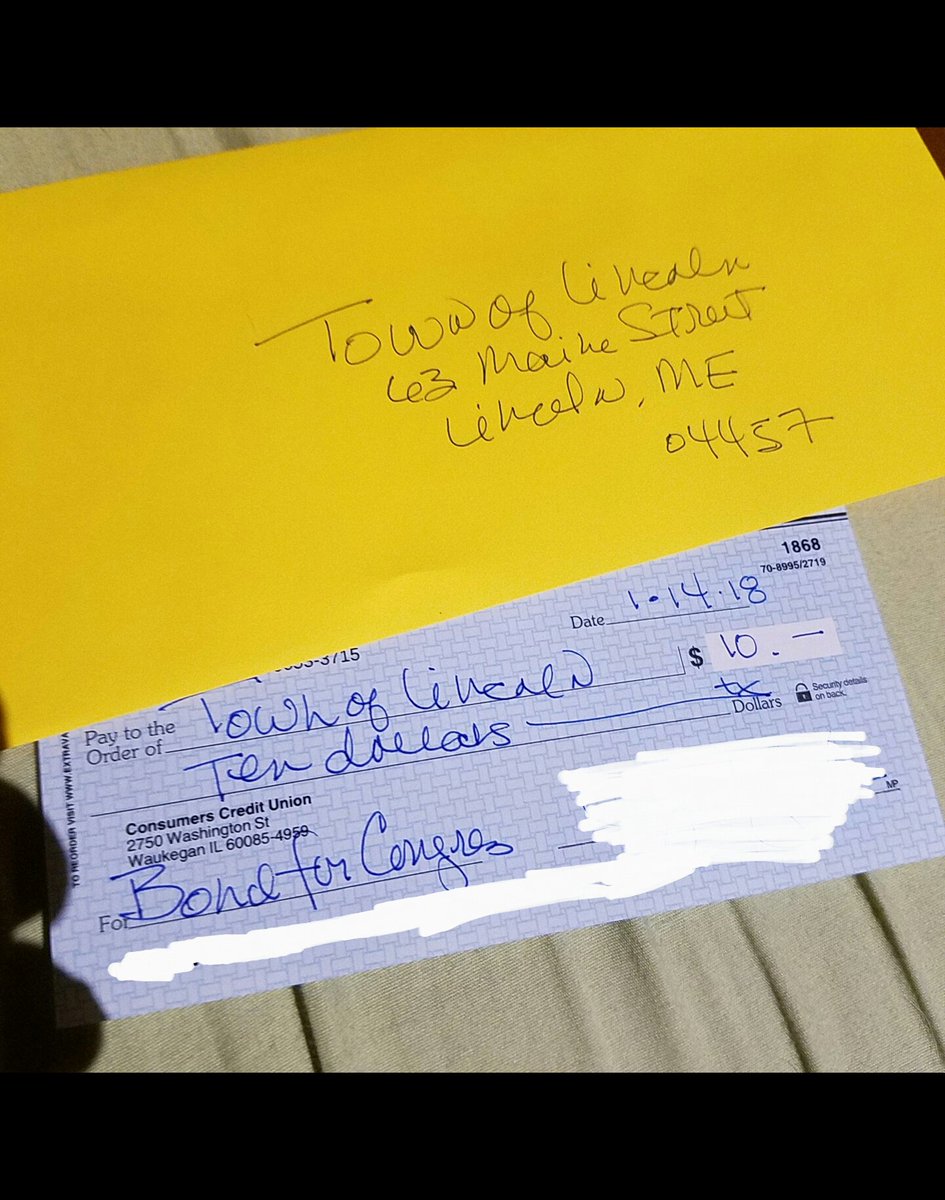 Town of Lincoln
63 Maine Street
Lincoln, ME
04457
1868
70-8995/2719
Date 1.14.18
3-3715
$ 10. —
Pay to the
Order of Town of Lincoln
Ten dollars
Dollars
Security details
on back.
TO REORDER VISIT WWW.EXTRAVA
Consumers Credit Union
2750 Washington St
Waukegan IL 60085-4959
MP
For Bond for Congres